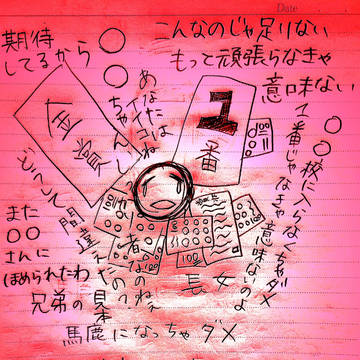 Date
こんなのじゃ足りない
もっと頑張らなきゃ
意味ない
期待
してるから
○○ちゃん
あなたは
イイコね
金賞
1
番
○○校に入らなくちゃダメ
1番じゃなきゃ意味ないのよ
どうして間違えたの?
なのねぇ
長女
また
○○
さんに
ほめられたわ
兄弟の見本
馬鹿になっちゃダメ